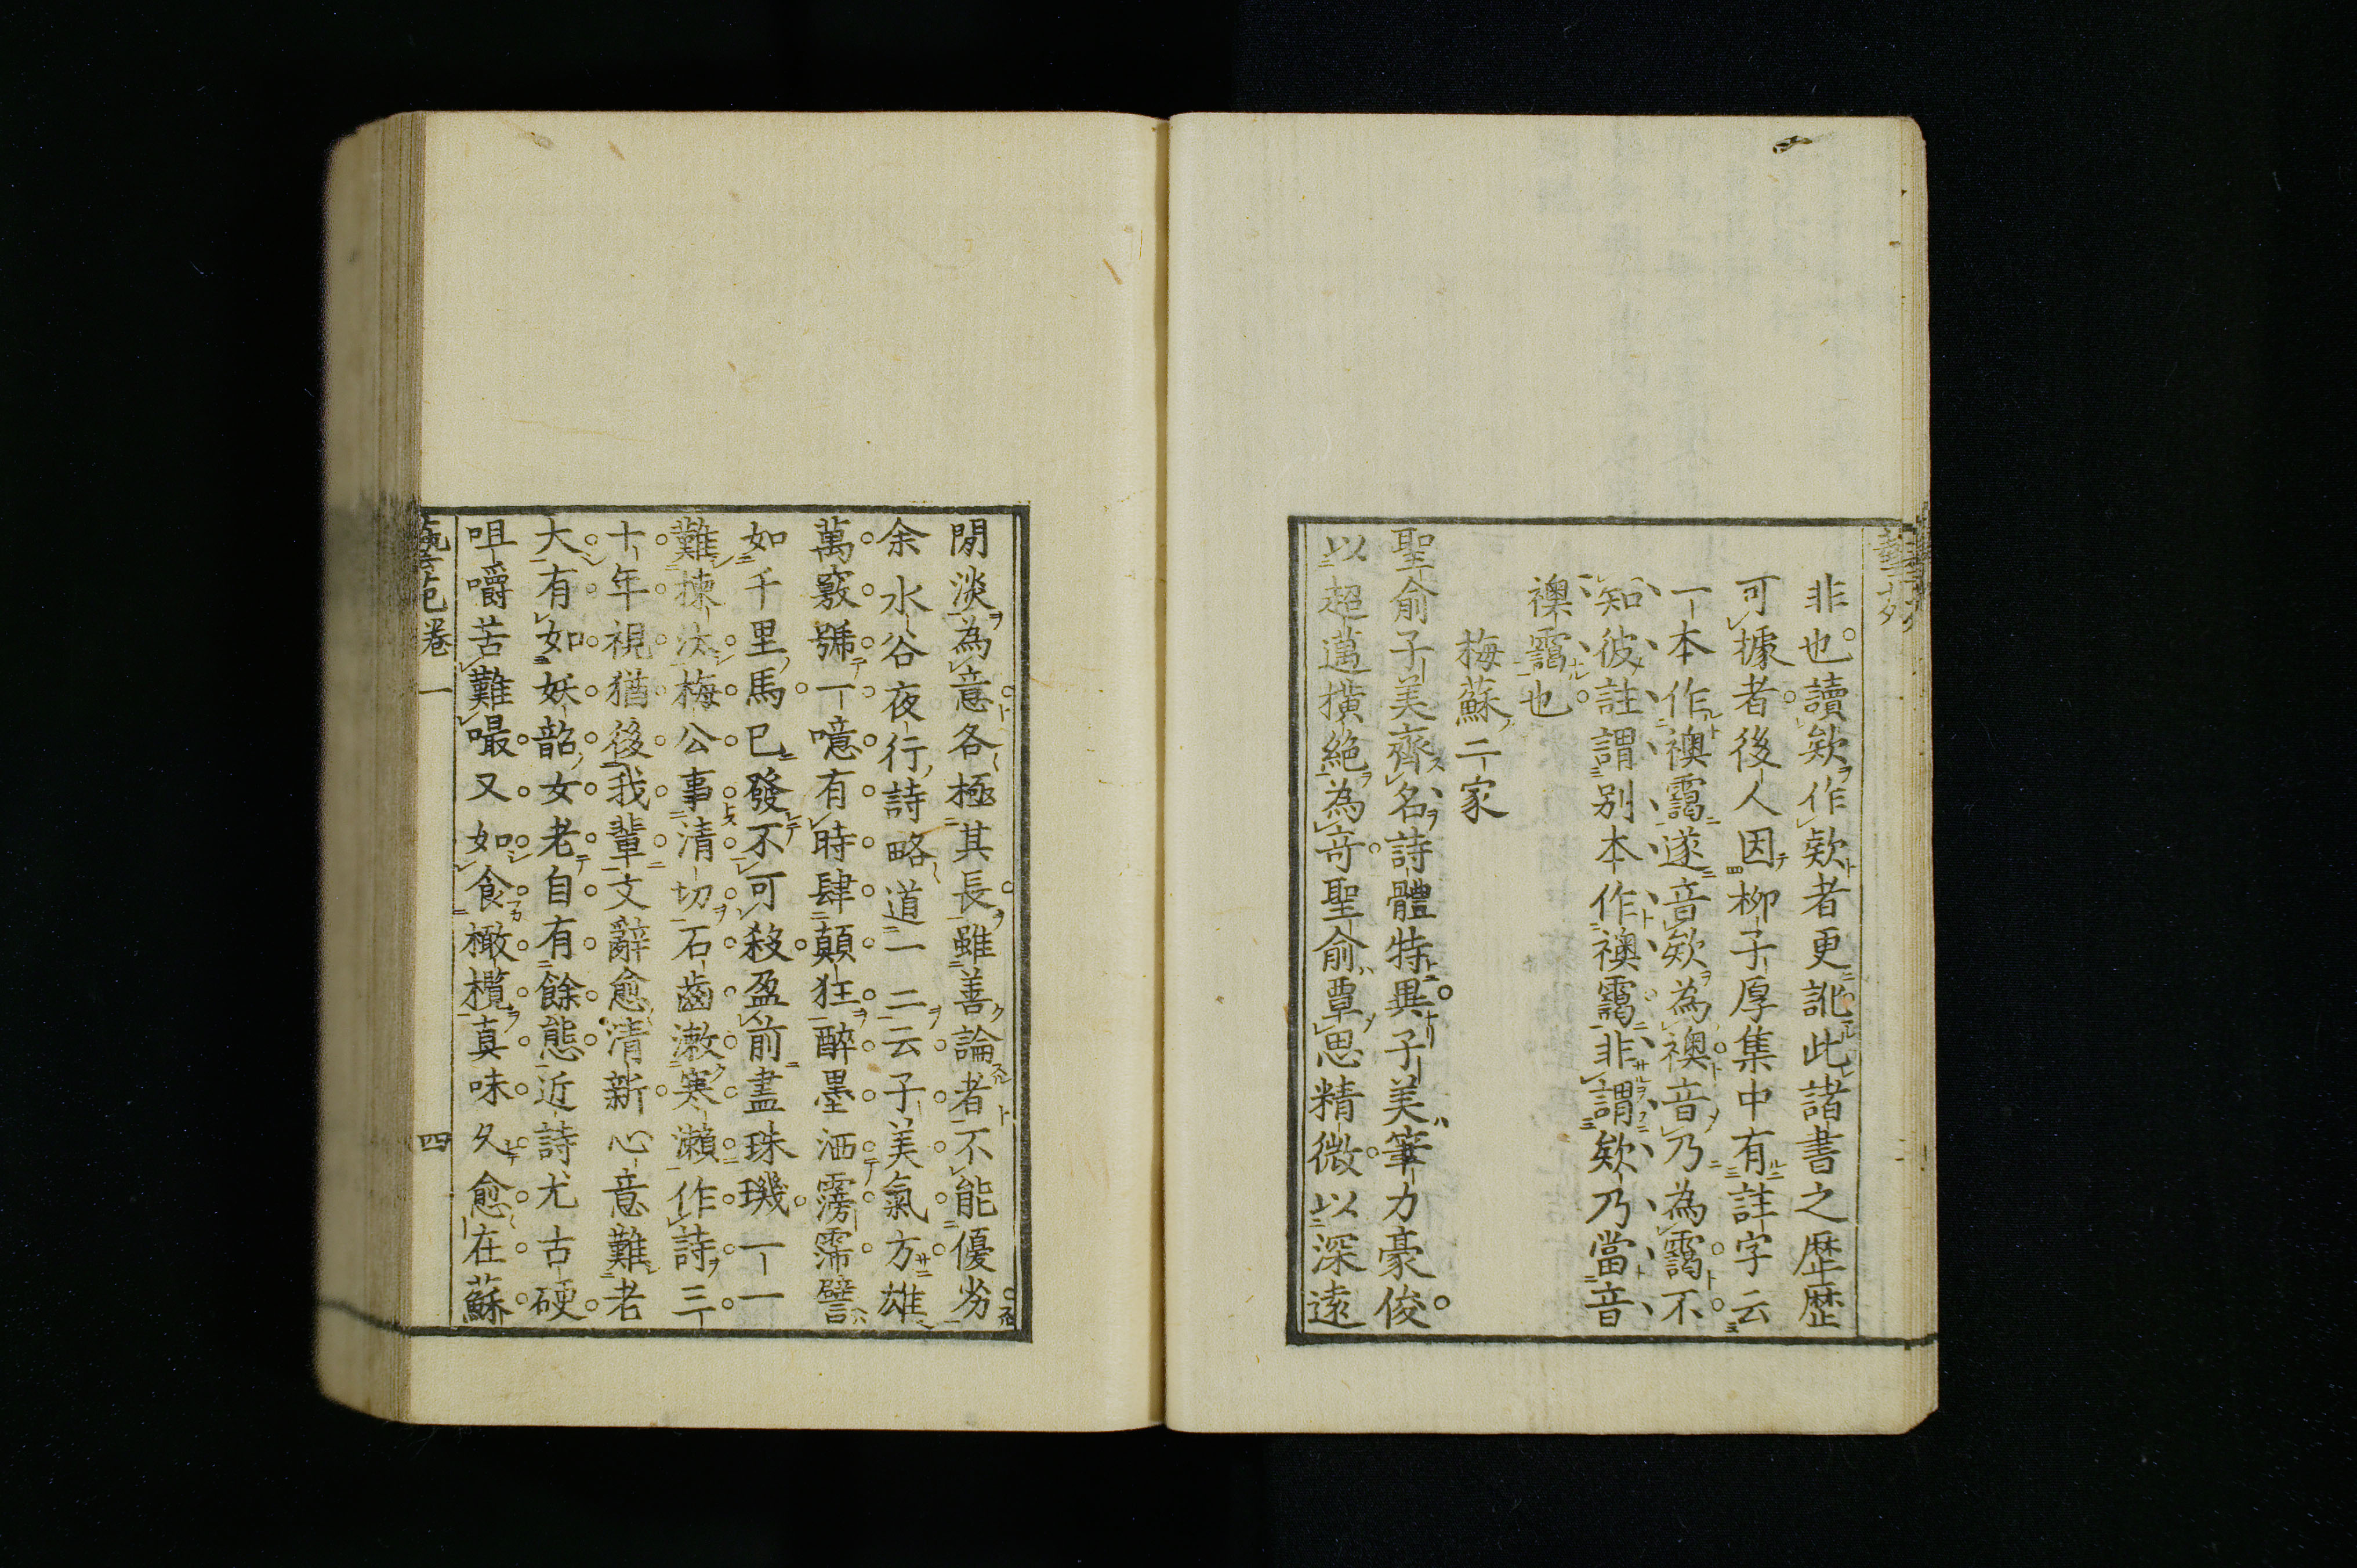 非也讀欸作欵者更訛此諸書之歷歷
可據者後人因柳子厚集中有註字云
一本作襖靄遂音欸為襖音乃為靄不
知彼註謂別本作襖靄非謂欸乃當音
襖靄也
梅蘇二家
聖俞子美齊名詩體特異子美筆力豪俊
以超邁橫絕為奇聖俞覃思精微以深遠
閒淡為意各極其長雖善論者不能優劣
余水谷夜行詩略道一二云子美氣方雄
萬竅號一噫有時肆顛狂醉墨洒霶霈譬
如千里馬已發不可殺盈前盡珠璣一一
難揀汰梅公事清切石齒漱寒瀨作詩三
十年視猶後我輩文辭愈清新心意難老
大有如妖韶女老自有餘態近詩尤古硬
咀嚼苦難嘬又如食橄欖真味久愈在蘇
卷一
四